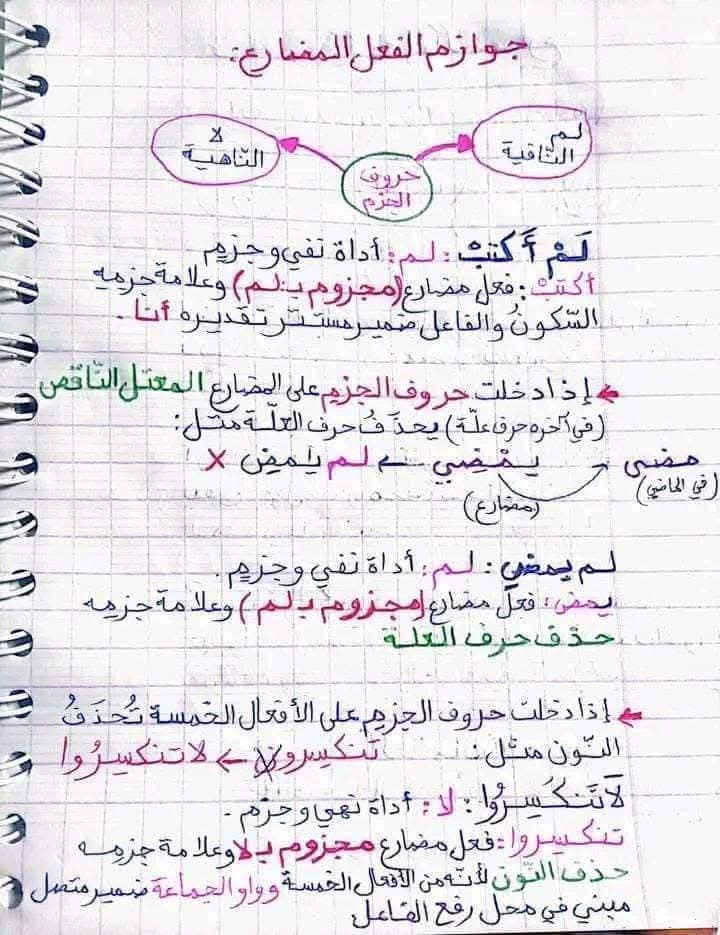 جوازم الفعل المضارع:
لم
النّافية
لا
النّاهية
حروف
الجزم
لَمْ أَكتبْ: لم: أداة نفي وجزم
أكتبْ: فعل مضارع (مجزوم بـ لم) وعلامة جزمه
السّكونُ والفاعل ضمير مستتر تقديره أنا.
← إذا دخلت حروف الجزم على المضارع المعتل النّاقص
(في آخره حرف علّة) يحذَفُ حرف العلّة مثل:
مضى يمْضِي ← لم يمض ×
(في الماضي) (مضارع)
لم يمضِ: لم: أداة نفي وجزم.
يمض: فعل مضارع (مجزوم بـ لم) وعلامة جزمه
حذف حرف العلة
← إذا دخلت حروف الجزم على الأفعال الخمسة تُحذَفُ
النّون مثل: تنكسرون ← لا تنكسِرُوا
لَا تَنكَسِرُوا: لا: أداة نهي وجزم.
تنكسروا: فعل مضارع مجزوم بـ لا وعلامة جزمه
حذف النّون لأنّه من الأفعال الخمسة وواو الجماعة ضمير متصل
مبني في محل رفع الفاعل.